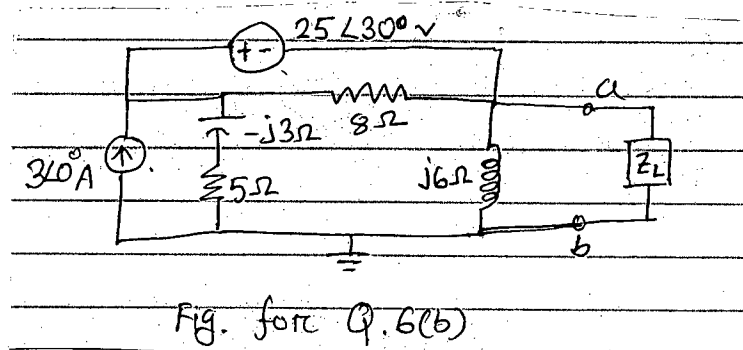 25∠30° v
+ -
a
-j3Ω
8Ω
3∠0° A
5Ω
j6Ω
Z_L
b
Fig. for Q.6(b)